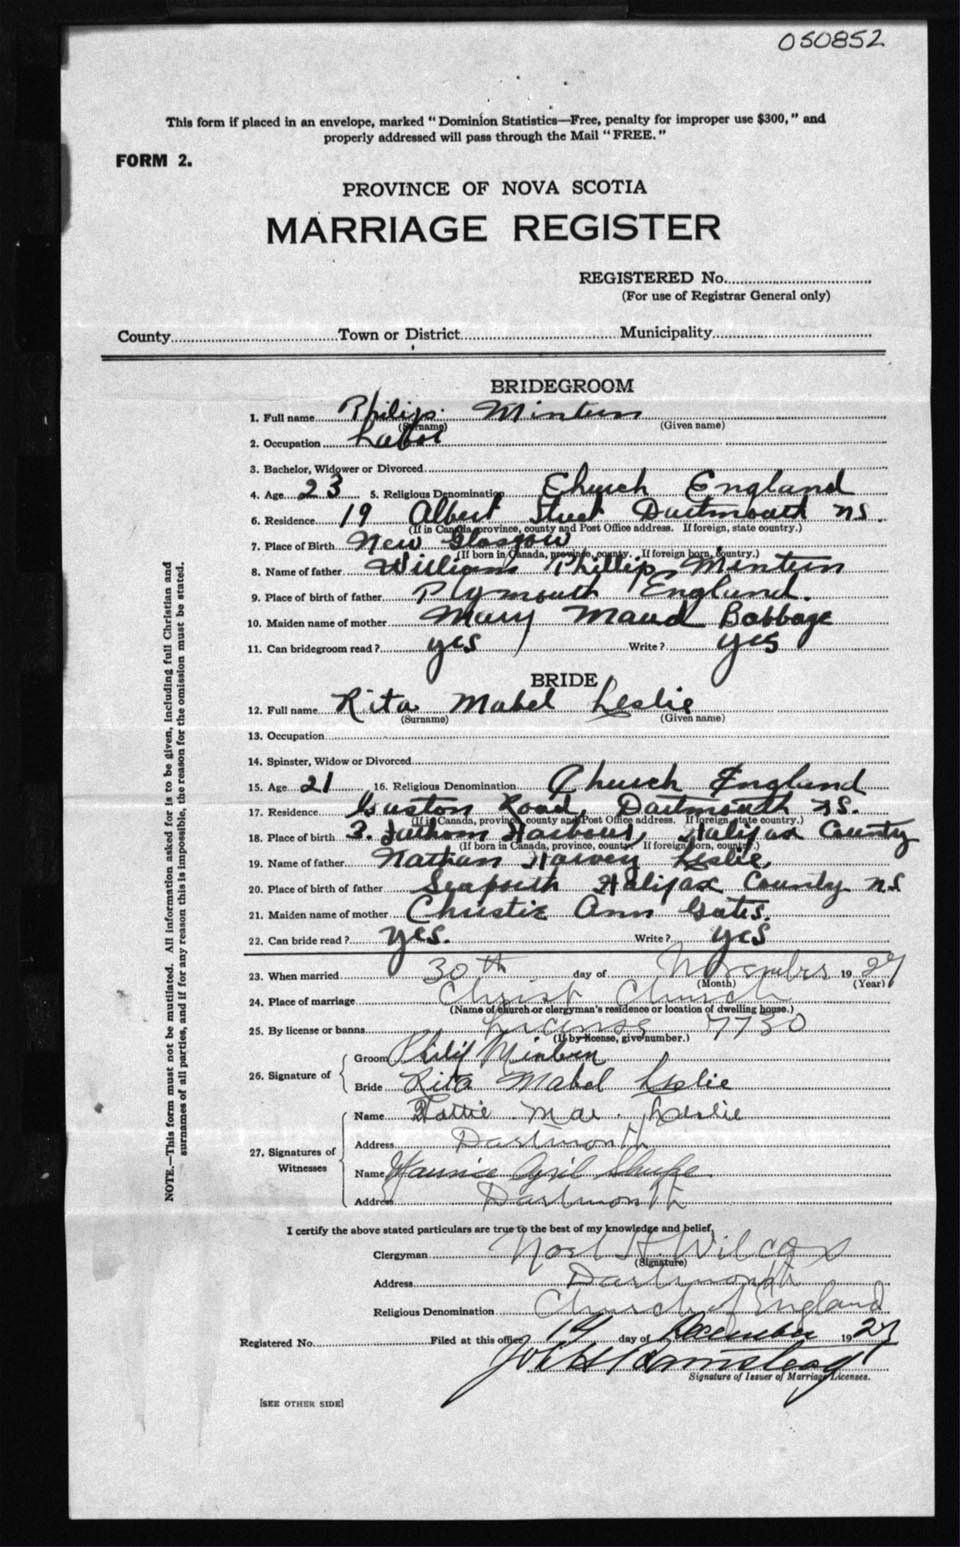 050852
This form if placed in an envelope, marked "Dominion Statistics—Free, penalty for improper use $300," and
properly addressed will pass through the Mail "FREE."
FORM 2.
PROVINCE OF NOVA SCOTIA
MARRIAGE REGISTER
REGISTERED No.
(For use of Registrar General only)
County Town or District Municipality
BRIDEGROOM
1. Full name Philip Mintern
(Surname) (Given name)
2. Occupation Labor
3. Bachelor, Widower or Divorced
4. Age 23 5. Religious Denomination Church England
6. Residence 19 Albert Street Dartmouth NS.
(If in Canada, province, county and Post Office address. If foreign, state country.)
7. Place of Birth New Glasgow
(If born in Canada, province, county. If foreign born, country.)
8. Name of father William Phillip Mintern
9. Place of birth of father Plymouth England.
10. Maiden name of mother Mary Maud Babbage
11. Can bridegroom read? yes Write? yes
BRIDE
12. Full name Rita Mabel Leslie
(Surname) (Given name)
13. Occupation
14. Spinster, Widow or Divorced
15. Age 21 16. Religious Denomination Church England
17. Residence Road Dartmouth NS.
(If in Canada, province, county and Post Office address. If foreign, state country.)
18. Place of birth 3. Fathom Harbour, Halifax County
(If born in Canada, province, county. If foreign born, country.)
19. Name of father Nathan Harvey Leslie,
20. Place of birth of father Seaforth Halifax County NS
21. Maiden name of mother Christie Ann Gates.
22. Can bride read? yes. Write? yes
23. When married 30th day of November 1927
(Month) (Year)
24. Place of marriage Christ Church
(Name of church or clergyman's residence or location of dwelling house.)
25. By license or banns License 7730
(If by license, give number.)
26. Signature of
Groom Philip Mintern
Bride Rita Mabel Leslie
27. Signatures of Witnesses
Name Hattie Mae. Leslie
Address Dartmouth
Name
Address Dartmouth
I certify the above stated particulars are true to the best of my knowledge and belief.
Clergyman Noel H. Wilcox
(Signature)
Address Dartmouth
Religious Denomination Church of England
Registered No. Filed at this office 14 day of December 1927
Signature of Issuer of Marriage Licenses.
[SEE OTHER SIDE]
NOTE.—This form must not be mutilated. All information asked for is to be given, including full Christian and
surnames of all parties, and if for any reason this is impossible, the reason for the omission must be stated.